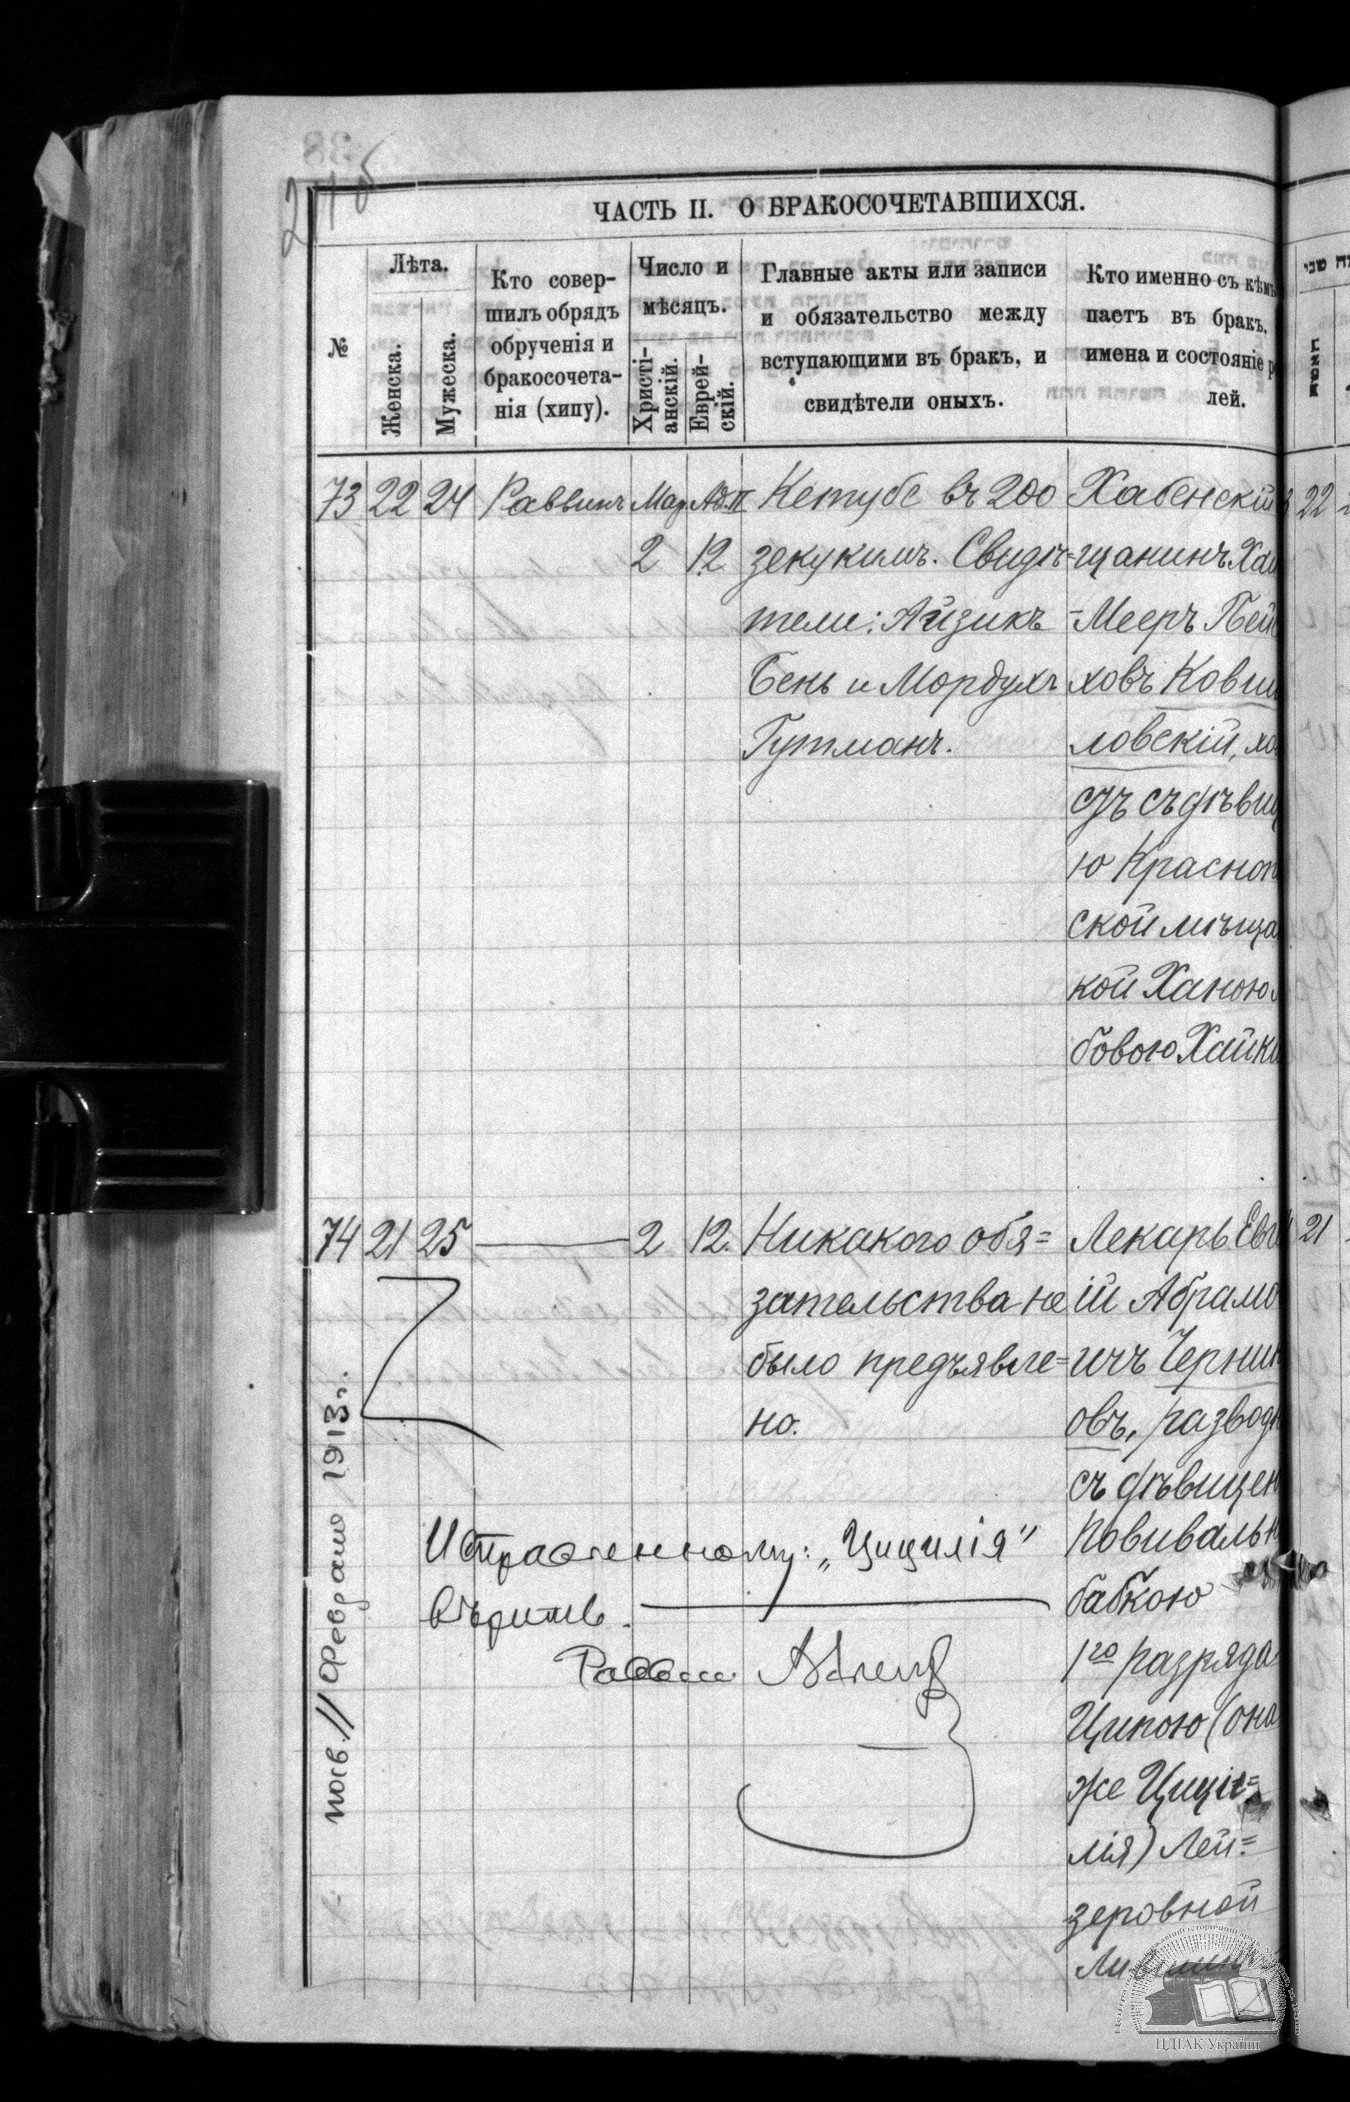 ЧАСТЬ II. О БРАКОСОЧЕТАВШИХСЯ.
№
Лѣта.
Женска.
Мужеска.
Кто совер-
шилъ обрядъ
обрученія и
бракосочета-
нія (хипу).
Число и
мѣсяцъ.
Христі-
анскій.
Еврей-
скій.
Главные акты или записи
и обязательство между
вступающими въ бракъ, и
свидѣтели оныхъ.
Кто именно съ кѣмъ
паетъ въ бракъ,
имена и состояніе р
лей.
73 22 24 Раввинъ Мар. Ад. II
2 12
Кетубе въ 200
зекукимъ. Свидѣ=
тели: Айзикъ
Бень и Мордухъ
Гутманъ.
Хабенскій
щанинъ Хаи
=Мееръ Пей
ховъ Ковш
ловскій, хо
стъ съ дѣвиц
ю Красноп
ской мѣща
кой Ханою
бовою Хайки
74 21 25 2 12.
Никакого обя=
зательства не
было предъявле=
но.
Лекарь Евг
ій Абрамо
ичъ Черник
овъ, развод
съ дѣвицею
повивальн
бабкою
1го разряда
Ципою (она
же Цици=
лія) Лей=
зеровной
Исправленному: „Цицилія"
вѣрить.
Раввин
посв. 11 Февраля 1913 г.
22
21
ЦДІАК України